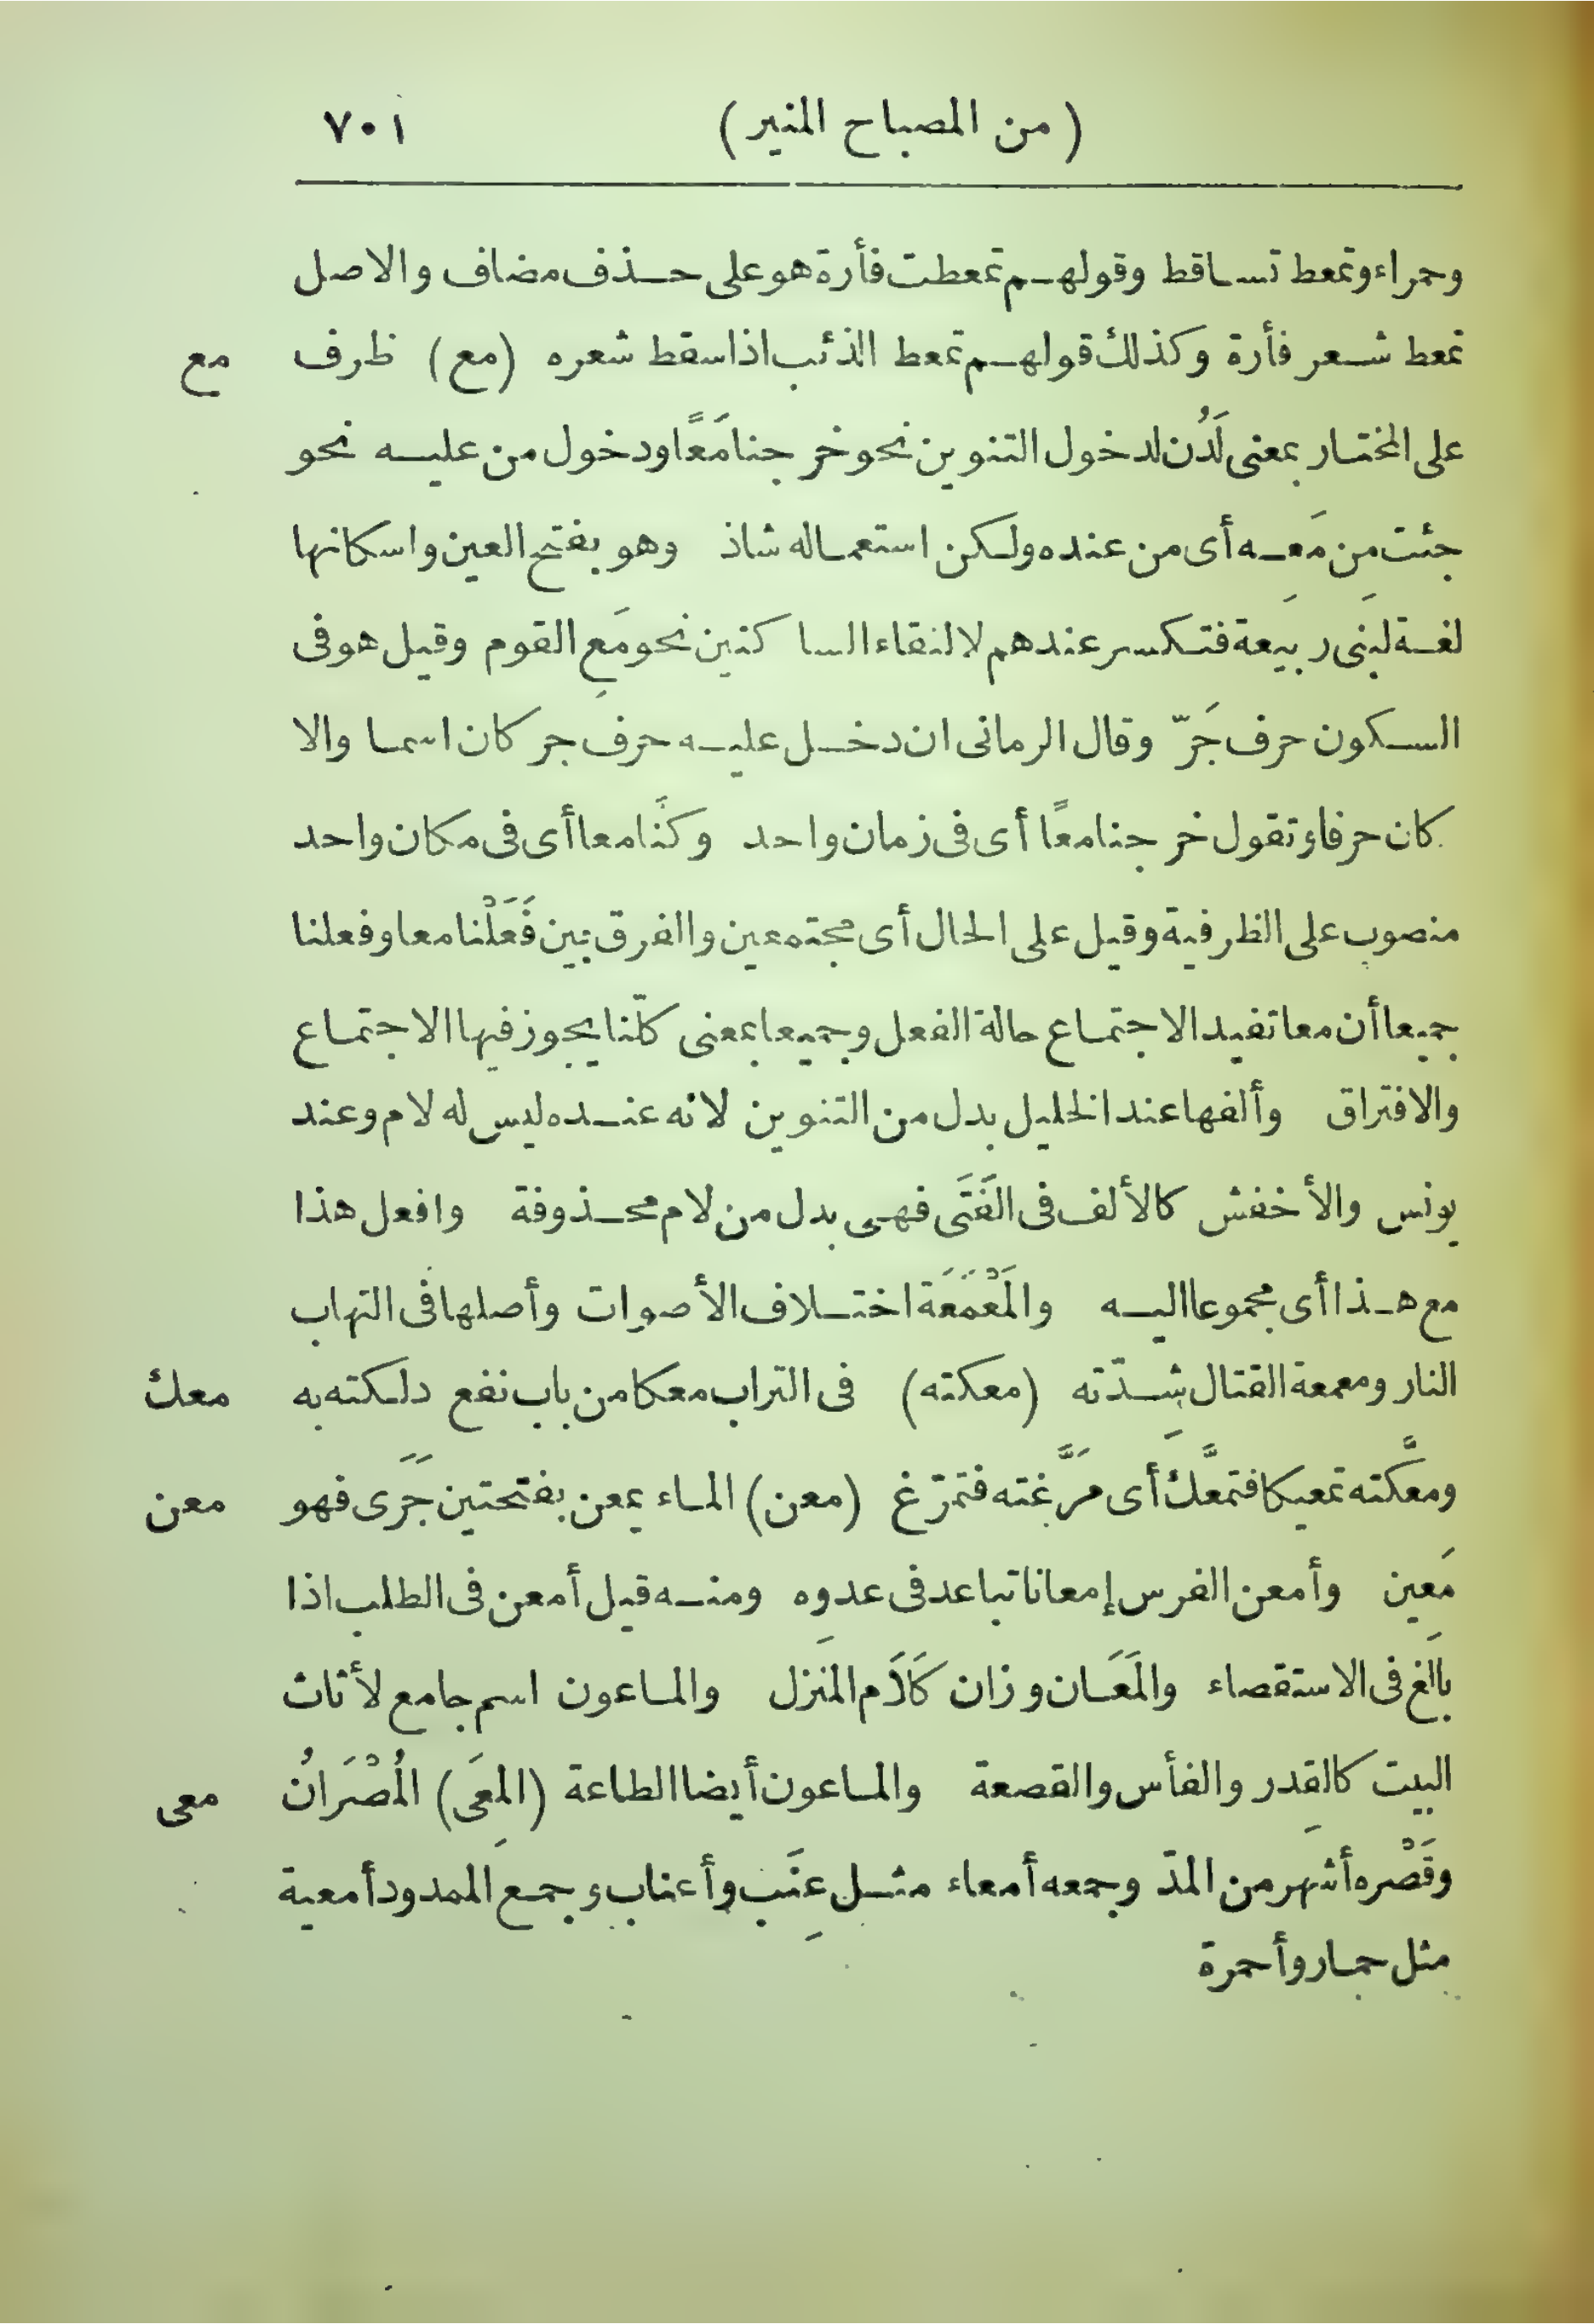 (من المصباح المنير) ٧٠١
وحمراء وتمعط تساقط وقولهم تمعطت فأرة هو على حذف مضاف والاصل
تمعط شعر فأرة وكذلك قولهم تمعط الذئب اذا سقط شعره (مع) ظرف مع
على المختار بمعنى لَدُن لدخول التنوين نحو خرجنا مَعًا ودخول من عليه نحو
جئت مِن مَعِه أى من عنده ولكن استعماله شاذ وهو بفتح العين واسكانها
لغة لبَنِى رَبِيعة فتكسر عندهم لالتقاء الساكنين نحو مَعِ القوم وقيل هو فى
السكون حرف جَرّ وقال الرمانى ان دخل عليه حرف جر كان اسما والا
كان حرفا وتقول خرجنا معًا أى فى زمان واحد وكنَّا معا أى فى مكان واحد
منصوب على الظرفية وقيل على الحال أى مجتمعين والفرق بين فَعَلْنا معا وفعلنا
جميعا أن معا تفيد الاجتماع حالة الفعل وجميعا بمعنى كلّنا يجوز فيها الاجتماع
والافتراق وألفها عند الخليل بدل من التنوين لانه عنده ليس له لام وعند
يونس والأخفش كالألف فى الفَتَى فهى بدل من لام محذوفة وافعل هذا
مع هذا أى مجموعا اليه والمَعْمَعَة اختلاف الأصوات وأصلها فى التهاب
النار ومعمعة القتال شِدّته (معكته) فى التراب معكا من باب نفع دلكته به معك
ومعَّكته تمعيكا فتمعَّك أى مَرَّغته فتمرّغ (معن) الماء يمعن بفتحتين جَرَى فهو معن
مَعِين وأمعن الفرس إمعانا تباعد فى عدوِه ومنه قيل أمعن فى الطلب اذا
بالَغ فى الاستقصاء والمَعَان وزان كَلَام المَنزِل والماعون اسم جامع لأثاث
البيت كالقِدر والفأس والقصعة والماعون أيضا الطاعة (المِعَى) المُصْرَانُ معى
وقَصْره أشهر من المدّ وجمعه أمعاء مثل عِنَب وأعناب وجمع الممدود أمعية
مثل حمار وأحمرة